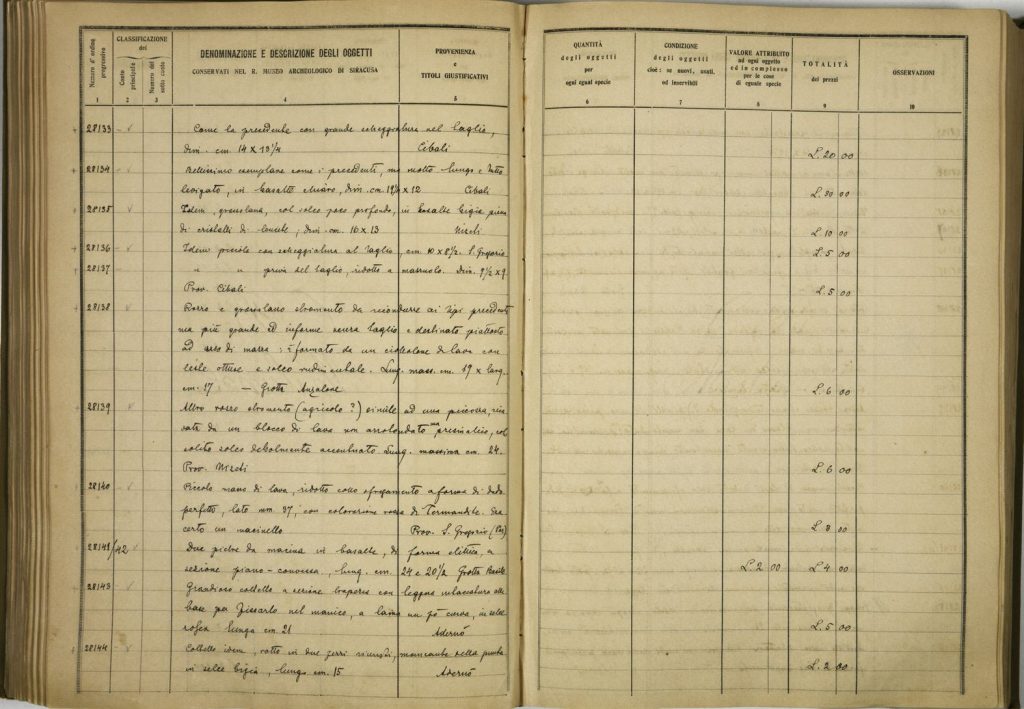 Numero d'ordine progressivo
CLASSIFICAZIONE del
Conto principale
Numero del sotto conto
DENOMINAZIONE E DESCRIZIONE DEGLI OGGETTI
CONSERVATI NEL R. MUSEO ARCHEOLOGICO DI SIRACUSA
PROVENIENZA
e
TITOLI GIUSTIFICATIVI
QUANTITÀ
degli oggetti
per
ogni egual specie
CONDIZIONE
degli oggetti
cioè: se nuovi, usati,
od inservibili
VALORE ATTRIBUITO
ad ogni oggetto
ed in complesso
per le cose
di eguale specie
TOTALITÀ
dei prezzi
OSSERVAZIONI
1 2 3 4 5 6 7 8 9 10
28133 Come la precedente con grande scheggiatura nel taglio,
dim. cm. 14 x 13 1/2 Cibali L. 20 00
28134 Bellissimo esemplare come i precedenti, ma molto lungo e tutto
levigato, in basalto chiaro, dim. cm. x 12 Cibali L. 30 00
28135 Idem, grossolana, col solco poco profondo, in basalto bigio pieno
di cristalli di leucite; dim. cm. 16 x 13 L. 10 00
28136 Idem piccola con scheggiatura al taglio, cm. 10 x 8 1/2. S. Gregorio L. 5 00
28137 " " priva del taglio, ridotta a mazzuolo. Dim. 9 1/2 x 9.
Prov. Cibali L. 5 00
28138 Rozzo e grossolano strumento da ricondurre ai tipi precedenti
ma più grande ed informe senza taglio e destinato piuttosto
ad uso di mazza; è formato da un ciottolone di lava con
teste ottuse e solco rudimentale. Lung. mass. cm. 19 x larg.
cm. 17 — Grotta Anzalone L. 6 00
28139 Altro rozzo strumento (agricolo?) simile ad una piccozza, rica
vata da un blocco di lava non arrotondato ma prismatico, col
solito solco debolmente accentuato. Lung. massima cm. 24.
Prov. L. 6 00
28140 Piccolo di lava, ridotto collo sfregamento a forma di dado
perfetto, lato mm. 37, con colorazione rossa di
certo un macinello Prov. S. Gregorio L. 3 00
28141/42 Due pietre da macina in basalto, di forma elittica, a
sezione piano-convessa, lung. cm. 24 e 20 1/2 Grotta L. 2 00 L. 4 00
28143 Grandioso coltello a sezione trapezia con leggera intaccatura alla
base per fissarlo nel manico, a lama un pò curva, in selce
rosea lungo cm. 21 Adernò L. 5 00
28144 Coltello idem, rotto in due pezzi riuniti, mancante della punta
in selce bigia, lungo cm. 15 Adernò L. 2 00